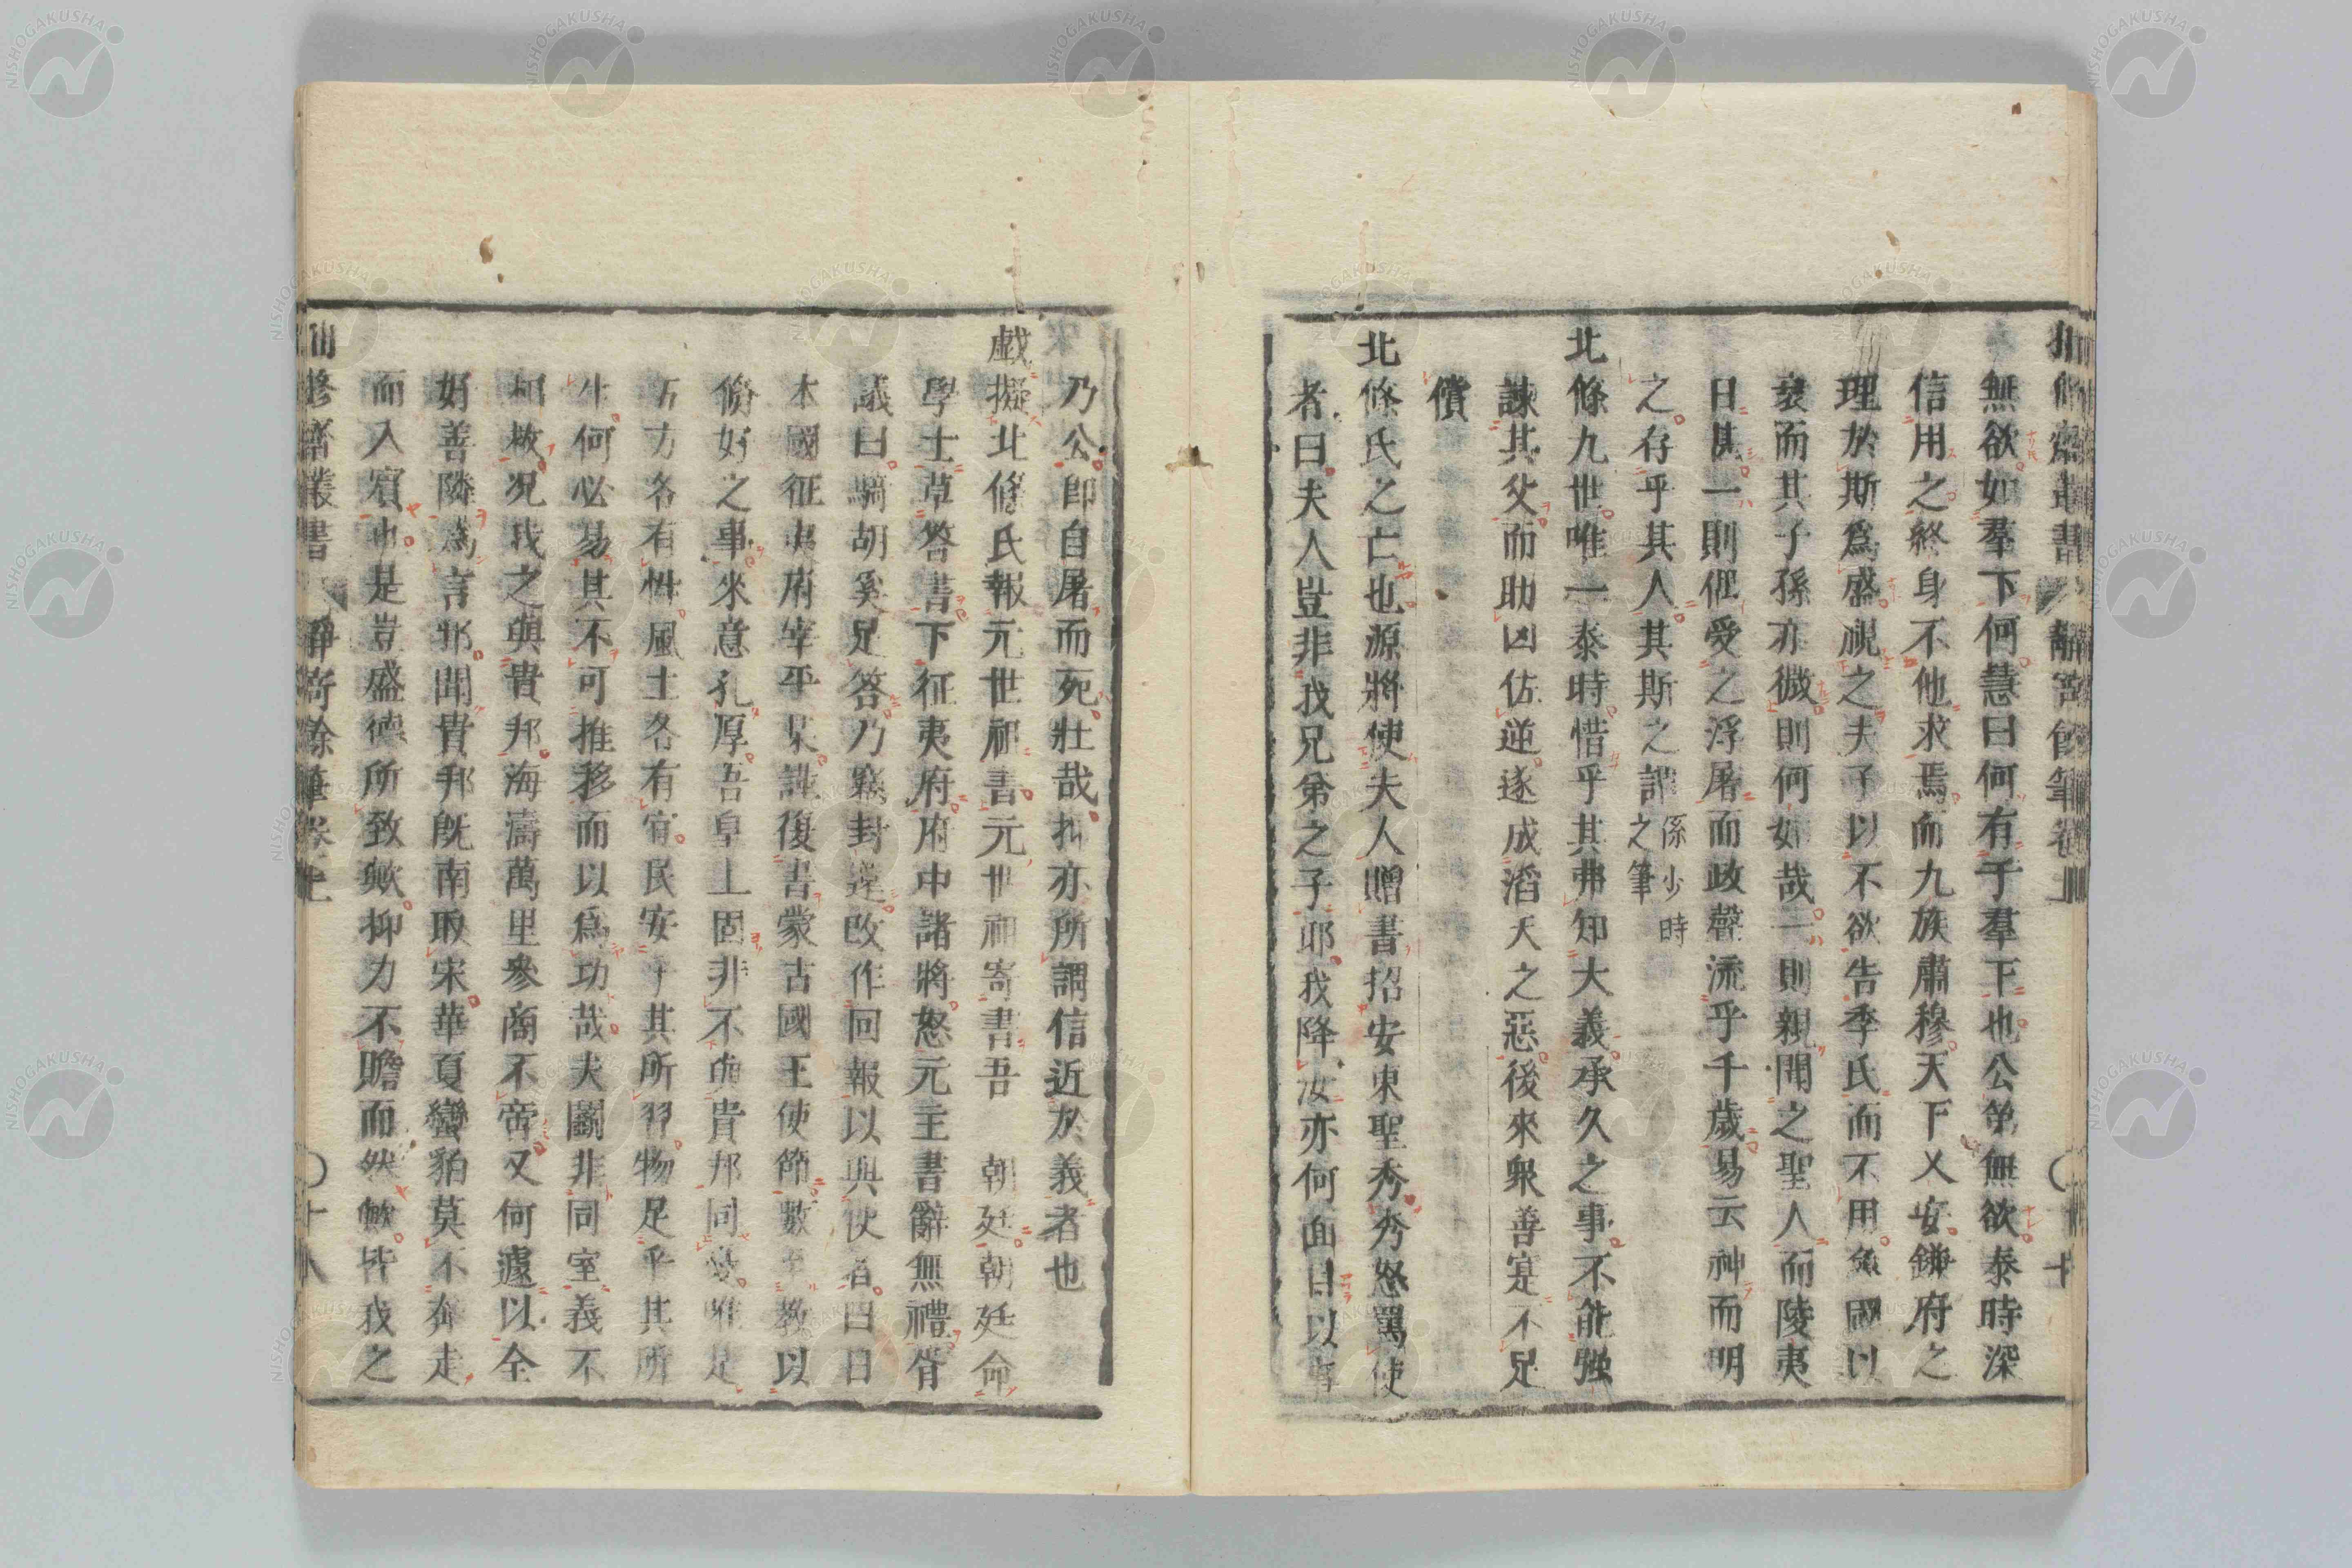 無欲如羣下何慧曰何有于羣下也公第無欲泰時深
信用之終身不他求焉而九族肅穆天下乂安鎌府之
理於斯爲盛視之夫子以不欲告季氏而不用魚國以
衰而其子孫亦微則何如哉一則親聞之聖人而陵夷
日甚一則俚愛之浮屠而政聲流乎千歲易云神而明
之存乎其人其斯之謂係少時之筆
北條九世唯一泰時惜乎其弗知大義承久之事不能强
諫其父而助凶佑逆遂成滔天之惡後來衆善寔不足
償
北條氏之亡也源將使夫人贈書招安東聖秀秀怒罵使
者曰夫人豈非我兄弟之子耶我降汝亦何面目以
乃公卽自屠而死壯哉抑亦所謂信近於義者也
戲擬北條氏報元世祖書元世祖寄書吾 朝廷朝廷命
學士草答書下征夷府府中諸將怒元主書辭無禮胥
議曰驕胡奚足答乃裹封還改作回報以與使者曰日
本國征夷府宰平某謹復書蒙古國王使節數至教以
脩好之事來意孔厚吾皇上固非不與貴邦同憂唯是
五方各有性風土各有宜民安乎其所習物足乎其所
生何必易其不可推移而以爲功哉夫鬭非同室義不
相救况我之與貴邦海濤萬里參商不啻又何遽以全
好善隣爲言邪聞貴邦旣南取宋華夏蠻貊莫不奔走
而入賓也是豈盛德所致歟抑力不贍而然歟皆我之
修齋叢書 靜寄餘筆卷上 〇十八